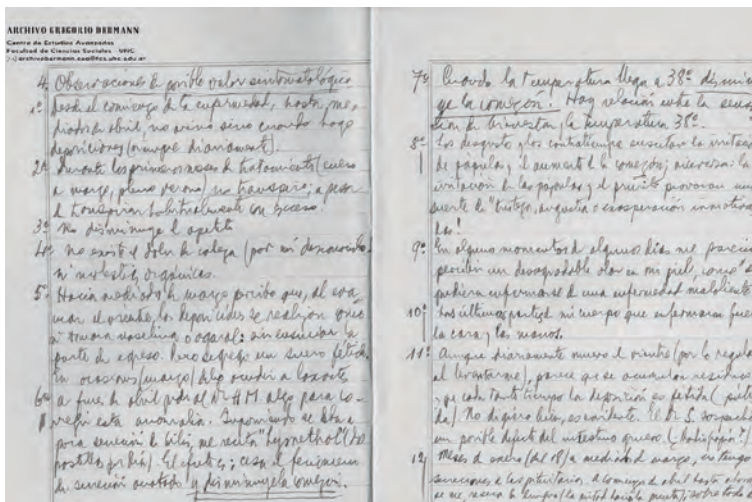 ARCHIVO GREGORIO BERMANN
Centro de Estudios Avanzados
Facultad de Ciencias Sociales - UNC
archivobermann.cea@fcs.unc.edu.ar
4. Observaciones de posible valor sintomatológico
1º Desde el comienzo de la enfermedad, hasta me-
diados de abril, no orino sino cuando hago
deposiciones (aunque diariamente).
2º Durante los primeros meses de tratamiento (enero
a marzo, pleno verano) no transpiro; a pesar
de transpirar habitualmente con exceso.
3º No disminuye el apetito
4º No existe el dolor de cabeza (por mí desconocido)
ni molestias orgánicas.
5º Hacia mediados de marzo percibo que, al eva-
cuar el vientre, las deposiciones se realizan como
si tomara vaselina o agarol: sin ensuciar la
parte de egreso. Pero segrego un suero fétido.
En ocasiones (marzo) debo acudir a laxantes
6º a fines de abril pido al Dr. H M algo para co-
rregir esta anomalía. Suponiendo se deba a
poca secreción de bilis, me receta
pastillas por día). El efectivo; cesa el fenómeno
de secreción anotado y disminuye la comezón.
7º Cuando la temperatura llega a 38º disminu-
ye la comezón. Hay relación entre la sensa-
ción de bienestar y la temperatura 38º.
8º Los disgustos y los contratiempos suscitan la irritación
de pápulas y el aumento de la comezón; viceversa: la
irritación de las pápulas y el prurito provocan una
suerte de angustia o exasperación inmotiva-
das!
9º En algunos momentos de algunos días me parecía
percibir un desagradable olor en mi piel, como
pudiera enfermarse de una enfermedad maloliente
10º Las últimas partes de mi cuerpo que enfermaron fueron
la cara y las manos.
11º Aunque diariamente muevo el vientre (por lo regular
al levantarme), parece que se acumulan residuos
y que cada tanto tiempo la deposición es fétida
da). No digiero bien, es evidente. El Dr. S. sospecha
un posible defecto del intestino grueso
12º Meses de enero (del 08) a mediados de marzo, no tengo
secreciones de las pituitarias. A comienzos de abril hasta ahora
se me reseca la lengua (la mitad hacia la punta), sobre todo